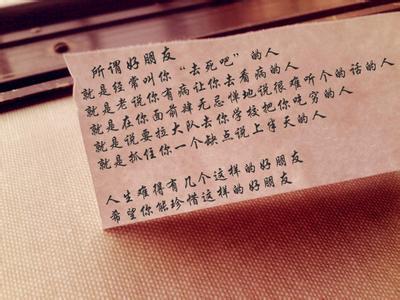 所谓好朋友
就是经常叫你“去死吧”的人
就是老说你有病让你去看病的人
就是在你面前肆无忌惮地说很难听个的话的人
就是说要拉大队去你学校把你吃穷的人
就是抓住你一个缺点说上半天的人
人生难得有几个这样的好朋友
希望你能珍惜这样的好朋友